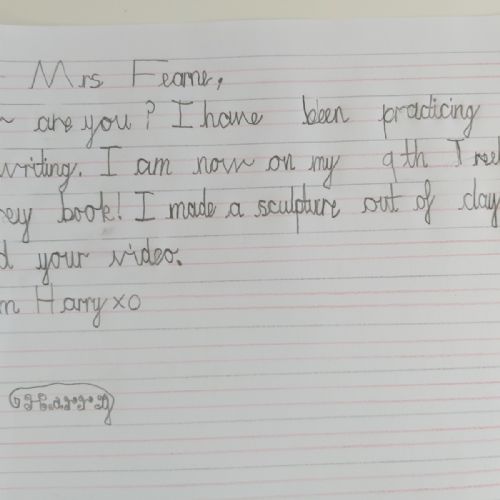 Mrs Fearne,
are you? I have been practicing
writing. I am now on my 9th Tree
book! I made a sculpture out of clay
your video.
Harry xo
Harry